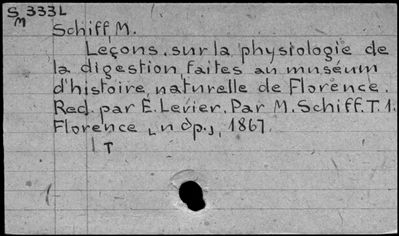 S 333L
M
Schiff, M.
Leçons sur la physiologie de
la digestion, faites au muséum
d'histoire naturelle de Florence.
Red. par E. Levier. Par M. Schiff. T. 1.
Florence, 1867.
T